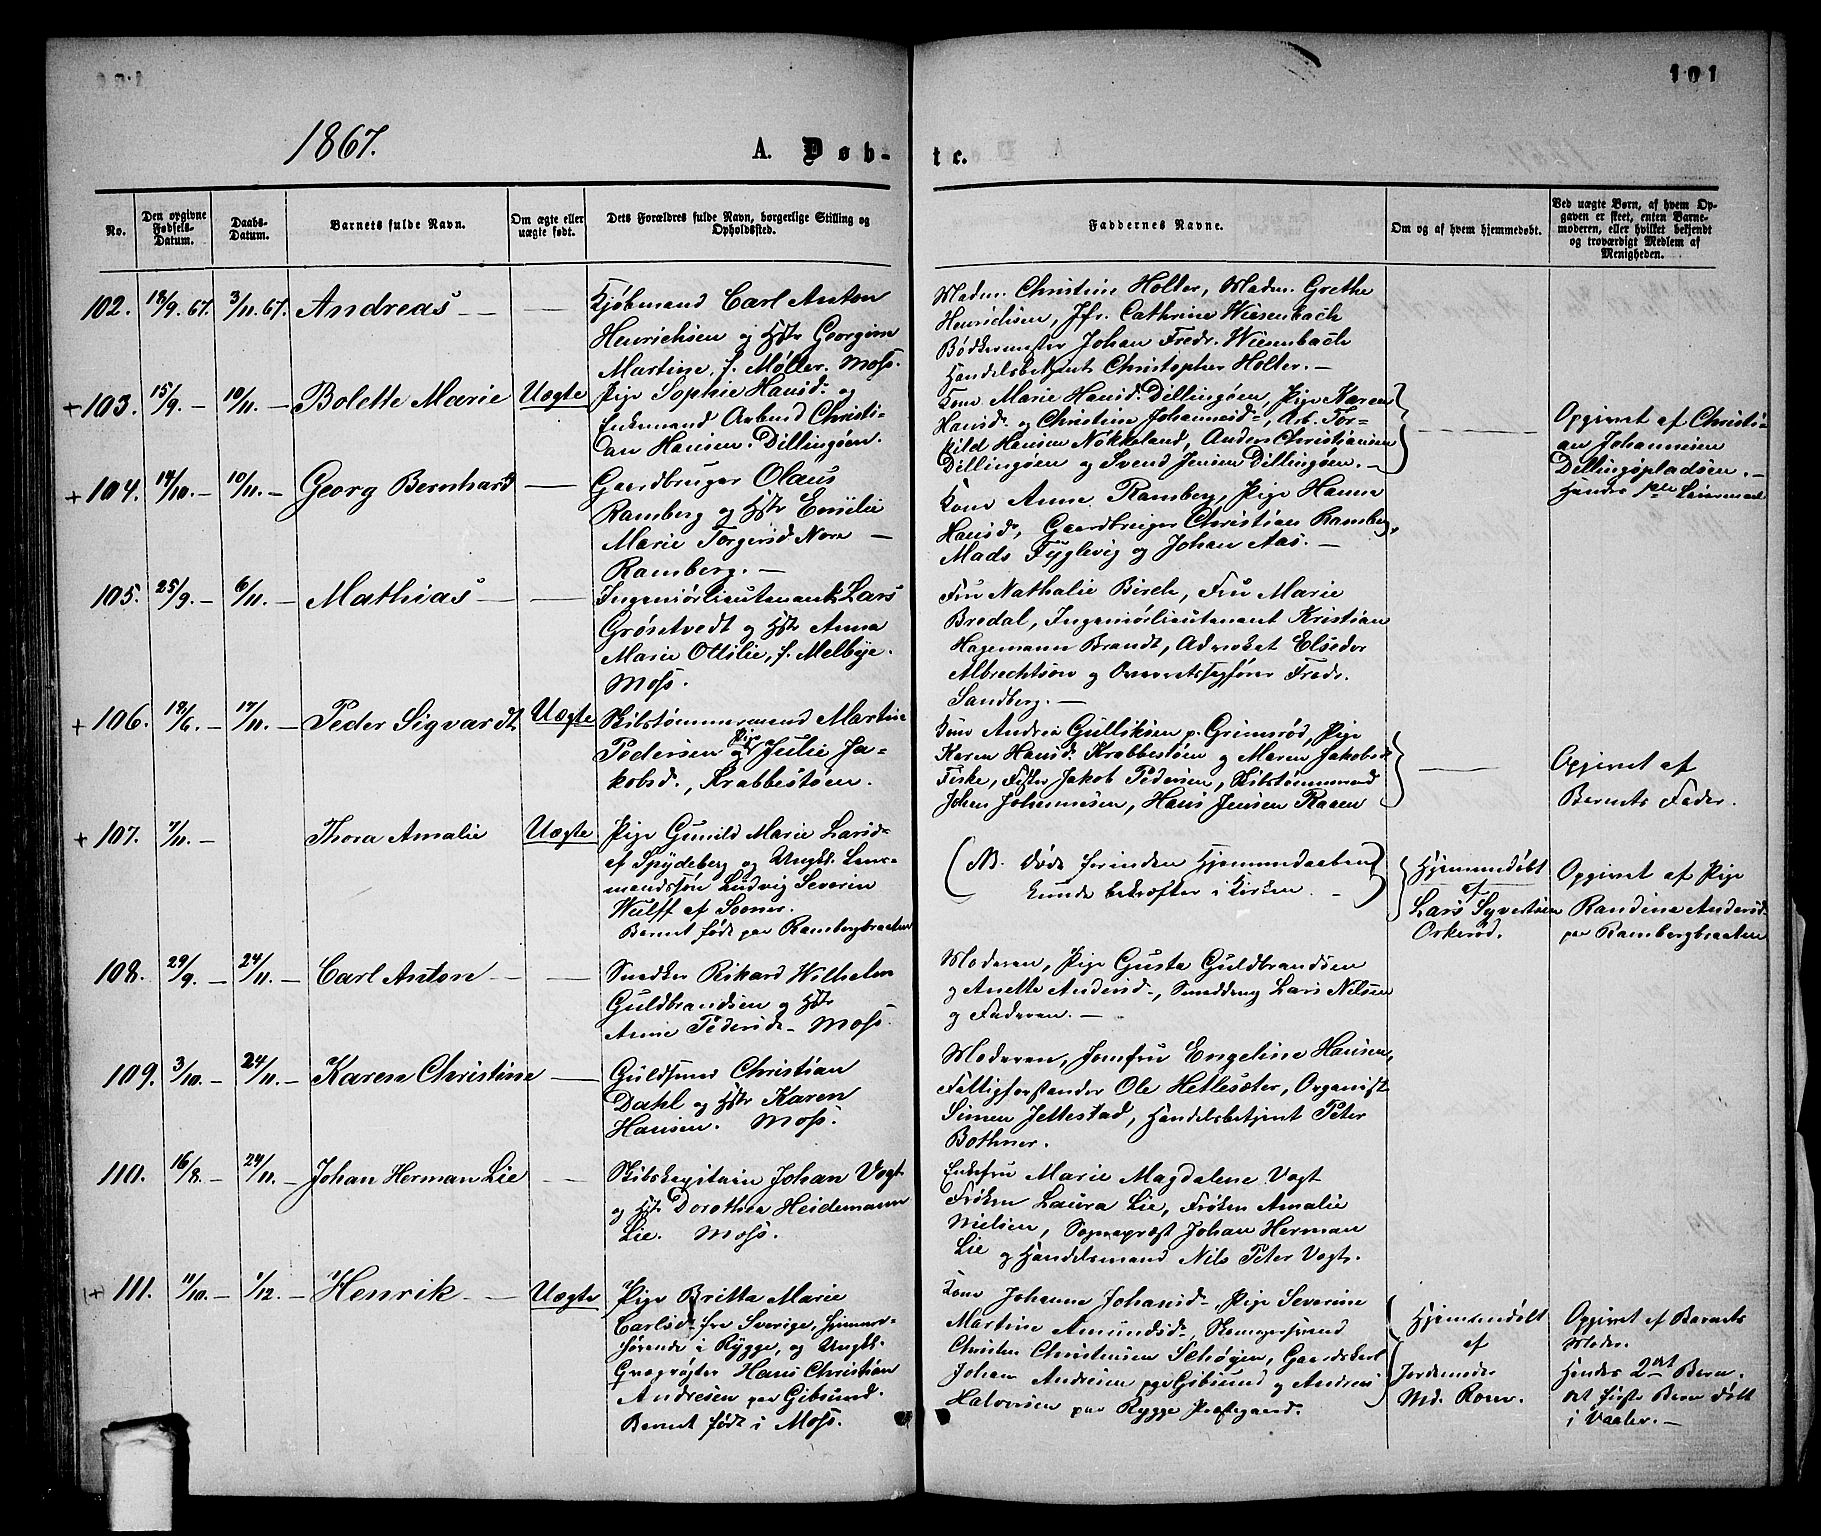 101
1867.
A. Døb-
te.
No.
Den opgivne Fødsels-Datum.
Daabs-Datum.
Barnets fulde Navn.
Om ægte eller uægte født.
Dets Forældres fulde Navn, borgerlige Stilling og Opholdssted.
Faddernes Navne.
Om og af hvem hjemmedøbt.
Ved uægte Børn, af hvem Opgaven er skeet, enten Barnemoderen, eller hvilket bekjendt og troværdigt Medlem af Menigheden.
102. 18/9. 67. 3/11. 67. Andreas — —
Kjøbmand Carl Anton
Henrichsen og Hstr Georgine
Martine, f. Møller. Moss.
Madm. Christine Holter, Madm. Grethe
Henrichsen, Jfr. Cathrine Wiesenbach
Bødkermester Johan Fredr. Wiesenbach
Handelsbetjent Christopher Holter. —
+ 103. 15/9. — 10/11. — Bolette Marie Uægte
Pige Sophie Hansd. og
Enkemand Arbmd Christi-
an Hansen. Dillingøen.
Kone Marie Hansd. Dillingøen, Pige Karen
Hansd. og Christine Johannesd., Arb. Tor-
kild Hansen Nokkeland, Anders Christiansen
Dillingøen og Svend Jensen Dillingøen. —
Opgivet af Christi-
an Johannesen
Dillingøpladsen. —
Hendes 1ste Leiermaal
+ 104. 14/10. — 10/11. — Georg Bernhard —
Gaardbruger Olaus
Ramberg og Hstr Emilie
Marie Torgersd Nore —
Ramberg. —
Kone Anne Ramberg, Pige Hanna
Hansd., Gaardbruger Christian Ramberg,
Mads Fuglevig og Johan Aas. —
105. 25/9. — 6/11. — Mathias — —
Ingeniørlieutenant Lars
Grøntvedt og Hstr Anna
Marie Ottilie, f. Melbye.
Moss.
Fru Nathalie Birch, Fru Marie
Bredal, Ingeniørlieutenant Kristian
Hagemann Brandt, Advokat Elseder
Albrechtson og Overretssagfører Fredr.
Sandberg. —
+ 106. 18/6. — 17/11. — Peder Sigvardt Uægte
Skibstømmermand Martin
Pedersen og Pige Julie Ja-
kobsd., Krabbestøen.
Kone Andrea Gulliksen p. Grimsrød, Pige
Karen Hansd. Krabbestøen og Maren Jakobsd.
Fiske, Jakob Pedersen, Skibstømmermand
Johan Johannesen, Hans Jensen Raaen
Opgivet af
Barnets Fader.
+ 107. 7/11. — Thora Amalie Uægte
Pige Gunild Marie Larsd.
af Spydeberg og Ungk. Lens-
mandssøn Ludvig Severin
Wulff af Sooner.
Barnet født paa Rambergbraaten
(NB. døde forinden Hjemmedaaben
kunde bekræftes i Kirken. —)
Hjemmedøbt
af
Lars Syvertsen
Orkerød.
Opgivet af Pige
Randine Andersd.
paa Rambergbraaten
108. 29/9. — 24/11. — Carl Anton — —
Snedker Rikard Wilhelm
Guldbrandsen og Hstr
Anne Pedersd. — Moss.
Moderen, Pige Gusta Guldbrandsen
og Anette Andersd., Smeddreng Lars Nilsen
og Faderen. —
109. 3/10. — 24/11. — Karen Christine —
Guldsmed Christian
Dahl og Hstr Karen
Hansen. Moss.
Moderen, Jomfru Engeline Hansen,
Fattigforstander Ole Hetlesæter, Organist
Simen Jellestad, Handelsbetjent Peter
Bothner.
110. 16/8. — 24/11. — Johan Herman Lie —
Skibskapitain Johan Vogt
og Hstr Dorothea Heidemann
Lie. Moss.
Enkefru Marie Magdalene Vogt
Frøken Laura Lie, Frøken Amalie
Nielsen, Sognepræst Johan Herman
Lie og Handelsmand Nils Peter Vogt.
+ 111. 11/10. — 1/12. — Henrik — Uægte
Pige Britta Marie
Carlsd. fra Sverige, hjemme-
hørende i Rygge, og Ungk.
Hans Christian
Andresen paa Gibsund.
Barnet født i Moss.
Kone Johanne Johansd., Pige Severine
Martine Amundsd.,
Christen Christensen Schøyen, Gaardskarl
Johan Andersen paa Gibsund og Andreas
Halvorsen paa Rygge Præstegaard.
Hjemmedøbt
af
Jordemoder
Md. Rom.
Opgivet af Barnets
Moder.
Hendes 2det Barn.
det første Barn døbt
i Vaaler. —